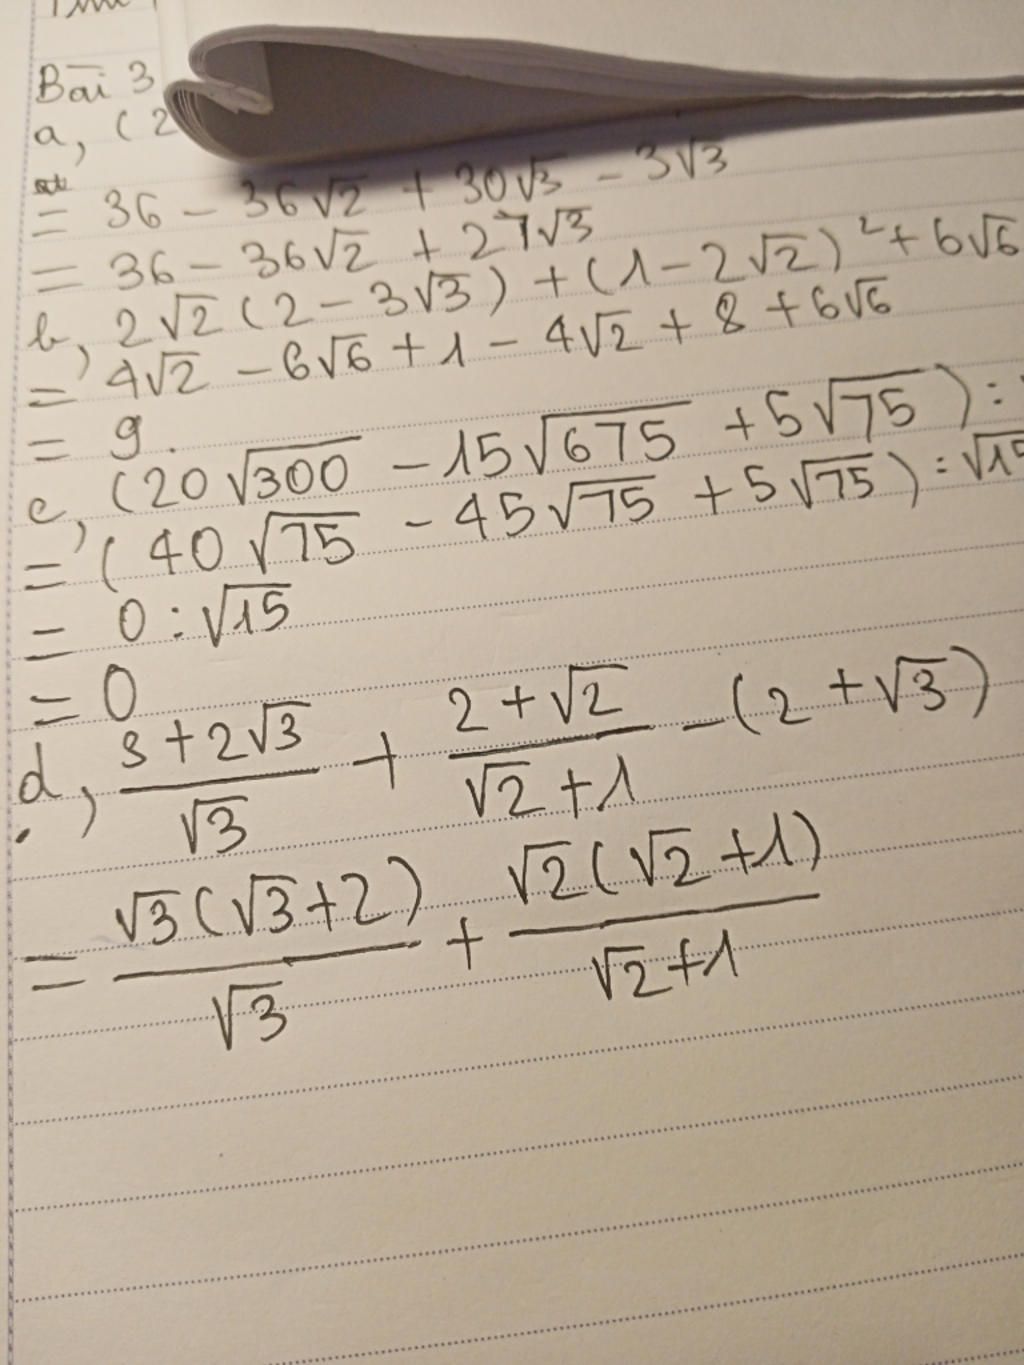 Bài 3
a, (2
= 36 - 36√2 + 30√3 - 3√3
= 36 - 36√2 + 27√3
b, 2√2(2 - 3√3) + (1 - 2√2)² + 6√6
= 4√2 - 6√6 + 1 - 4√2 + 8 + 6√6
= 9.
c, (20√300 - 15√675 + 5√75) :
= (40√75 - 45√75 + 5√75) : √15
= 0 : √15
= 0
d, (3 + 2√3)/√3 + (2 + √2)/(√2 + 1) - (2 + √3)
= √3(√3 + 2)/√3 + √2(√2 + 1)/(√2 + 1)